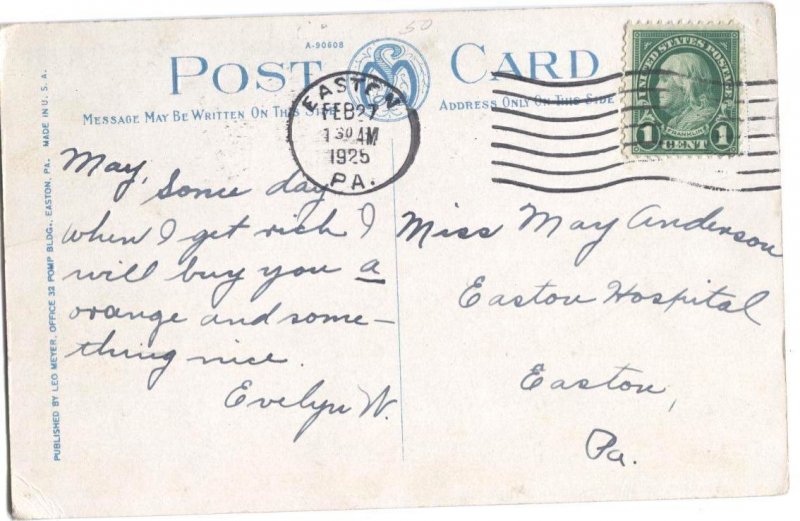 50
A-90608
POST CARD
MESSAGE MAY BE WRITTEN ON THIS SIDE
ADDRESS ONLY ON THIS SIDE
EASTON
FEB 27
1 30 AM
1925
PA.
UNITED STATES POSTAGE
FRANKLIN
1 CENT 1
May, Some day
when I get rich I
will buy you a
orange and some-
thing nice.
Evelyn W.
Miss May Anderson
Easton Hospital
Easton,
Pa.
PUBLISHED BY LEO MEYER, OFFICE 32 POMP BLDG., EASTON, PA. MADE IN U. S. A.